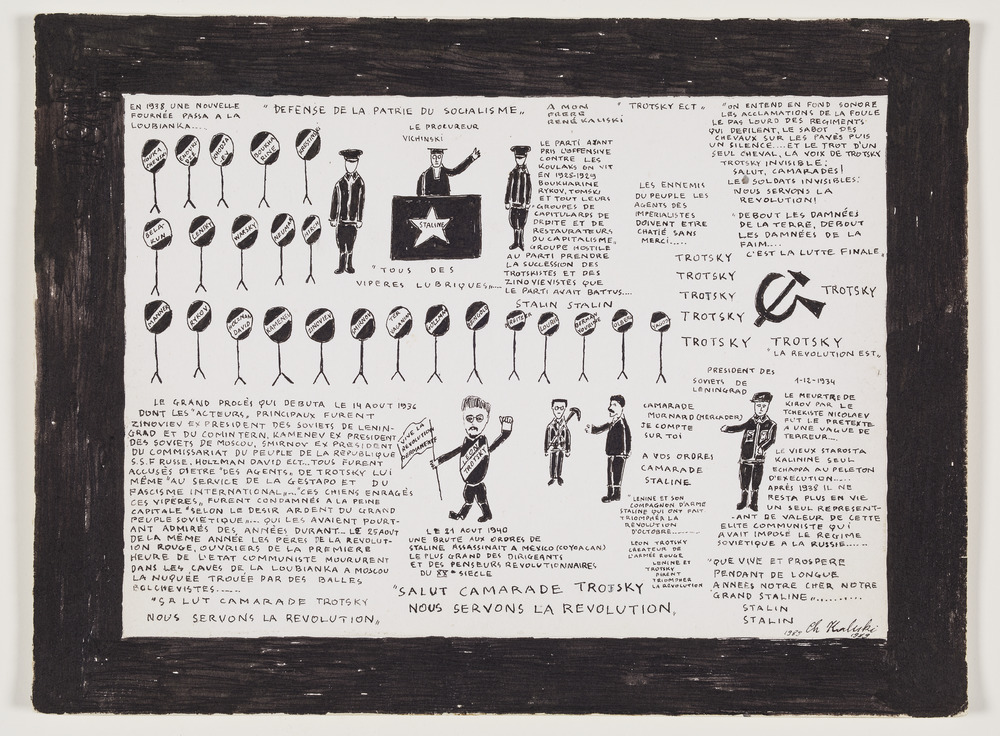 EN 1938, UNE NOUVELLE
FOURNÉE PASSA A LA
LOUBIANKA....
"DEFENSE DE LA PATRIE DU SOCIALISME"
A MON
FRERE
RENÉ KALISKI
"TROTSKY ECT"
LE PROCUREUR
VICHINSKI
STALINE
"TOUS DES
VIPERES LUBRIQUES"....
LE PARTI AYANT
PRIS L'OFFENSIVE
CONTRE LES
KOULAKS ON VIT
EN 1928-1929
BOUKHARINE
RYKOV, TOMSKI
ET TOUT LEURS
"GROUPES DE
CAPITULARDS DE
DROITE ET DE
RESTAURATEURS
DU CAPITALISME"
GROUPE HOSTILE
AU PARTI PRENDRE
LA SUCCESSION DES
TROTSKISTES ET DES
ZINOVIEVISTES QUE
LE PARTI AVAIT BATTUS....
STALIN STALIN
LES ENNEMIS
DU PEUPLE LES
AGENTS DES
IMPERIALISTES
DOIVENT ETRE
CHATIÉ SANS
MERCI.....
"ON ENTEND EN FOND SONORE
LES ACCLAMATIONS DE LA FOULE
LE PAS LOURD DES REGIMENTS
QUI DEFILENT, LE SABOT DES
CHEVAUX SUR LES PAVÉS PUIS
UN SILENCE....ET LE TROT D'UN
SEUL CHEVAL, LA VOIX DE TROTSKY
TROTSKY INVISIBLE:
SALUT, CAMARADES!
LES SOLDATS INVISIBLES:
NOUS SERVONS LA
REVOLUTION!
"DEBOUT LES DAMNÉES
DE LA TERRE, DEBOUT
LES DAMNÉES DE LA
FAIM....
C'EST LA LUTTE FINALE"
TROTSKY
TROTSKY
TROTSKY
TROTSKY
TROTSKY
TROTSKY
TROTSKY
"LA REVOLUTION EST"
BELA-
KUN
LENSKI
WARSKY
NEUMANN
RYKOV
HOLZMAN
DAVID
KAMENEV
ZINOVIEV
SMIRNOV
TER
VAGANIAN
LOURIE
BERMAN
YOURINE
OLBERG
LE GRAND PROCÉS QUI DEBUTA LE 14 AOUT 1936
DONT LES "ACTEURS" PRINCIPAUX FURENT
ZINOVIEV EX PRESIDENT DES SOVIETS DE LENIN-
GRAD ET DU COMINTERN, KAMENEV EX PRESIDENT
DES SOVIETS DE MOSCOU, SMIRNOV EX PRESIDENT
DU COMMISSARIAT DU PEUPLE DE LA REPUBLIQUE
S.S.F RUSSE, HOLZMAN DAVID ECT...TOUS FURENT
ACCUSÉS D'ETRE "DES AGENTS" DE TROTSKY LUI
MÊME "AU SERVICE DE LA GESTAPO ET DU
FASCISME INTERNATIONAL"..."CES CHIENS ENRAGÉS
CES VIPÉRES" FURENT CONDAMNÉS A LA PEINE
CAPITALE "SELON LE DESIR ARDENT DU GRAND
PEUPLE SOVIETIQUE".... QUI LES AVAIENT POURT-
ANT ADMIRÉS DES ANNÉES DURANT... LE 25 AOUT
DE LA MÊME ANNÉE LES PÉRES DE LA REVOLUT-
ION ROUGE, OUVRIERS DE LA PREMIERE
HEURE DE L'ETAT COMMUNISTE MOURURENT
DANS LES CAVES DE LA LOUBIANKA A MOSCOU
LA NUQUÉE TROUÉE PAR DES BALLES
BOLCHEVISTES......
"SALUT CAMARADE TROTSKY
NOUS SERVONS LA REVOLUTION"
VIVE LA
REVOLUTION
PERMANENTE
LEON
TROTSKY
LE 21 AOUT 1940
UNE BRUTE AUX ORDRES DE
STALINE ASSASSINAIT A MEXICO (COYOACAN)
LE PLUS GRAND DES DIRIGEANTS
ET DES PENSEURS REVOLUTIONNAIRES
DU XXe SIÉCLE
"SALUT CAMARADE TROTSKY
NOUS SERVONS LA REVOLUTION"
CAMARADE
MORNARD (MERCADER)
JE COMPTE
SUR TOI
A VOS ORDRES
CAMARADE
STALINE
"LENINE ET SON
COMPAGNON D'ARME
STALINE QUI ONT FAIT
TRIOMPHER LA
REVOLUTION
D'OCTOBRE........
LEON TROTSKY
CREATEUR DE
L'ARMÉE ROUGE
LENINE ET
TROTSKY
FIRENT
TRIOMPHER
LA REVOLUTION
PRESIDENT DES
SOVIETS DE
LENINGRAD
1-12-1934
LE MEURTRE DE
KIROV PAR LE
TCHEKISTE NICOLAEV
FUT LE PRETEXTE
A UNE VAGUE DE
TERREUR....
LE VIEUX STAROSTA
KALININE SEUL
ECHAPPA AU PELETON
D'EXECUTION.....
APRÉS 1938 IL NE
RESTA PLUS EN VIE
UN SEUL REPRESENT-
-ANT DE VALEUR DE CETTE
ELITE COMMUNISTE QUI
AVAIT IMPOSÉ LE REGIME
SOVIÉTIQUE A LA RUSSIE.....
"QUE VIVE ET PROSPERE
PENDANT DE LONGUE
ANNÉES NOTRE CHER NOTRE
GRAND STALINE"..........
STALIN
STALIN
Ch Kaliski
1989